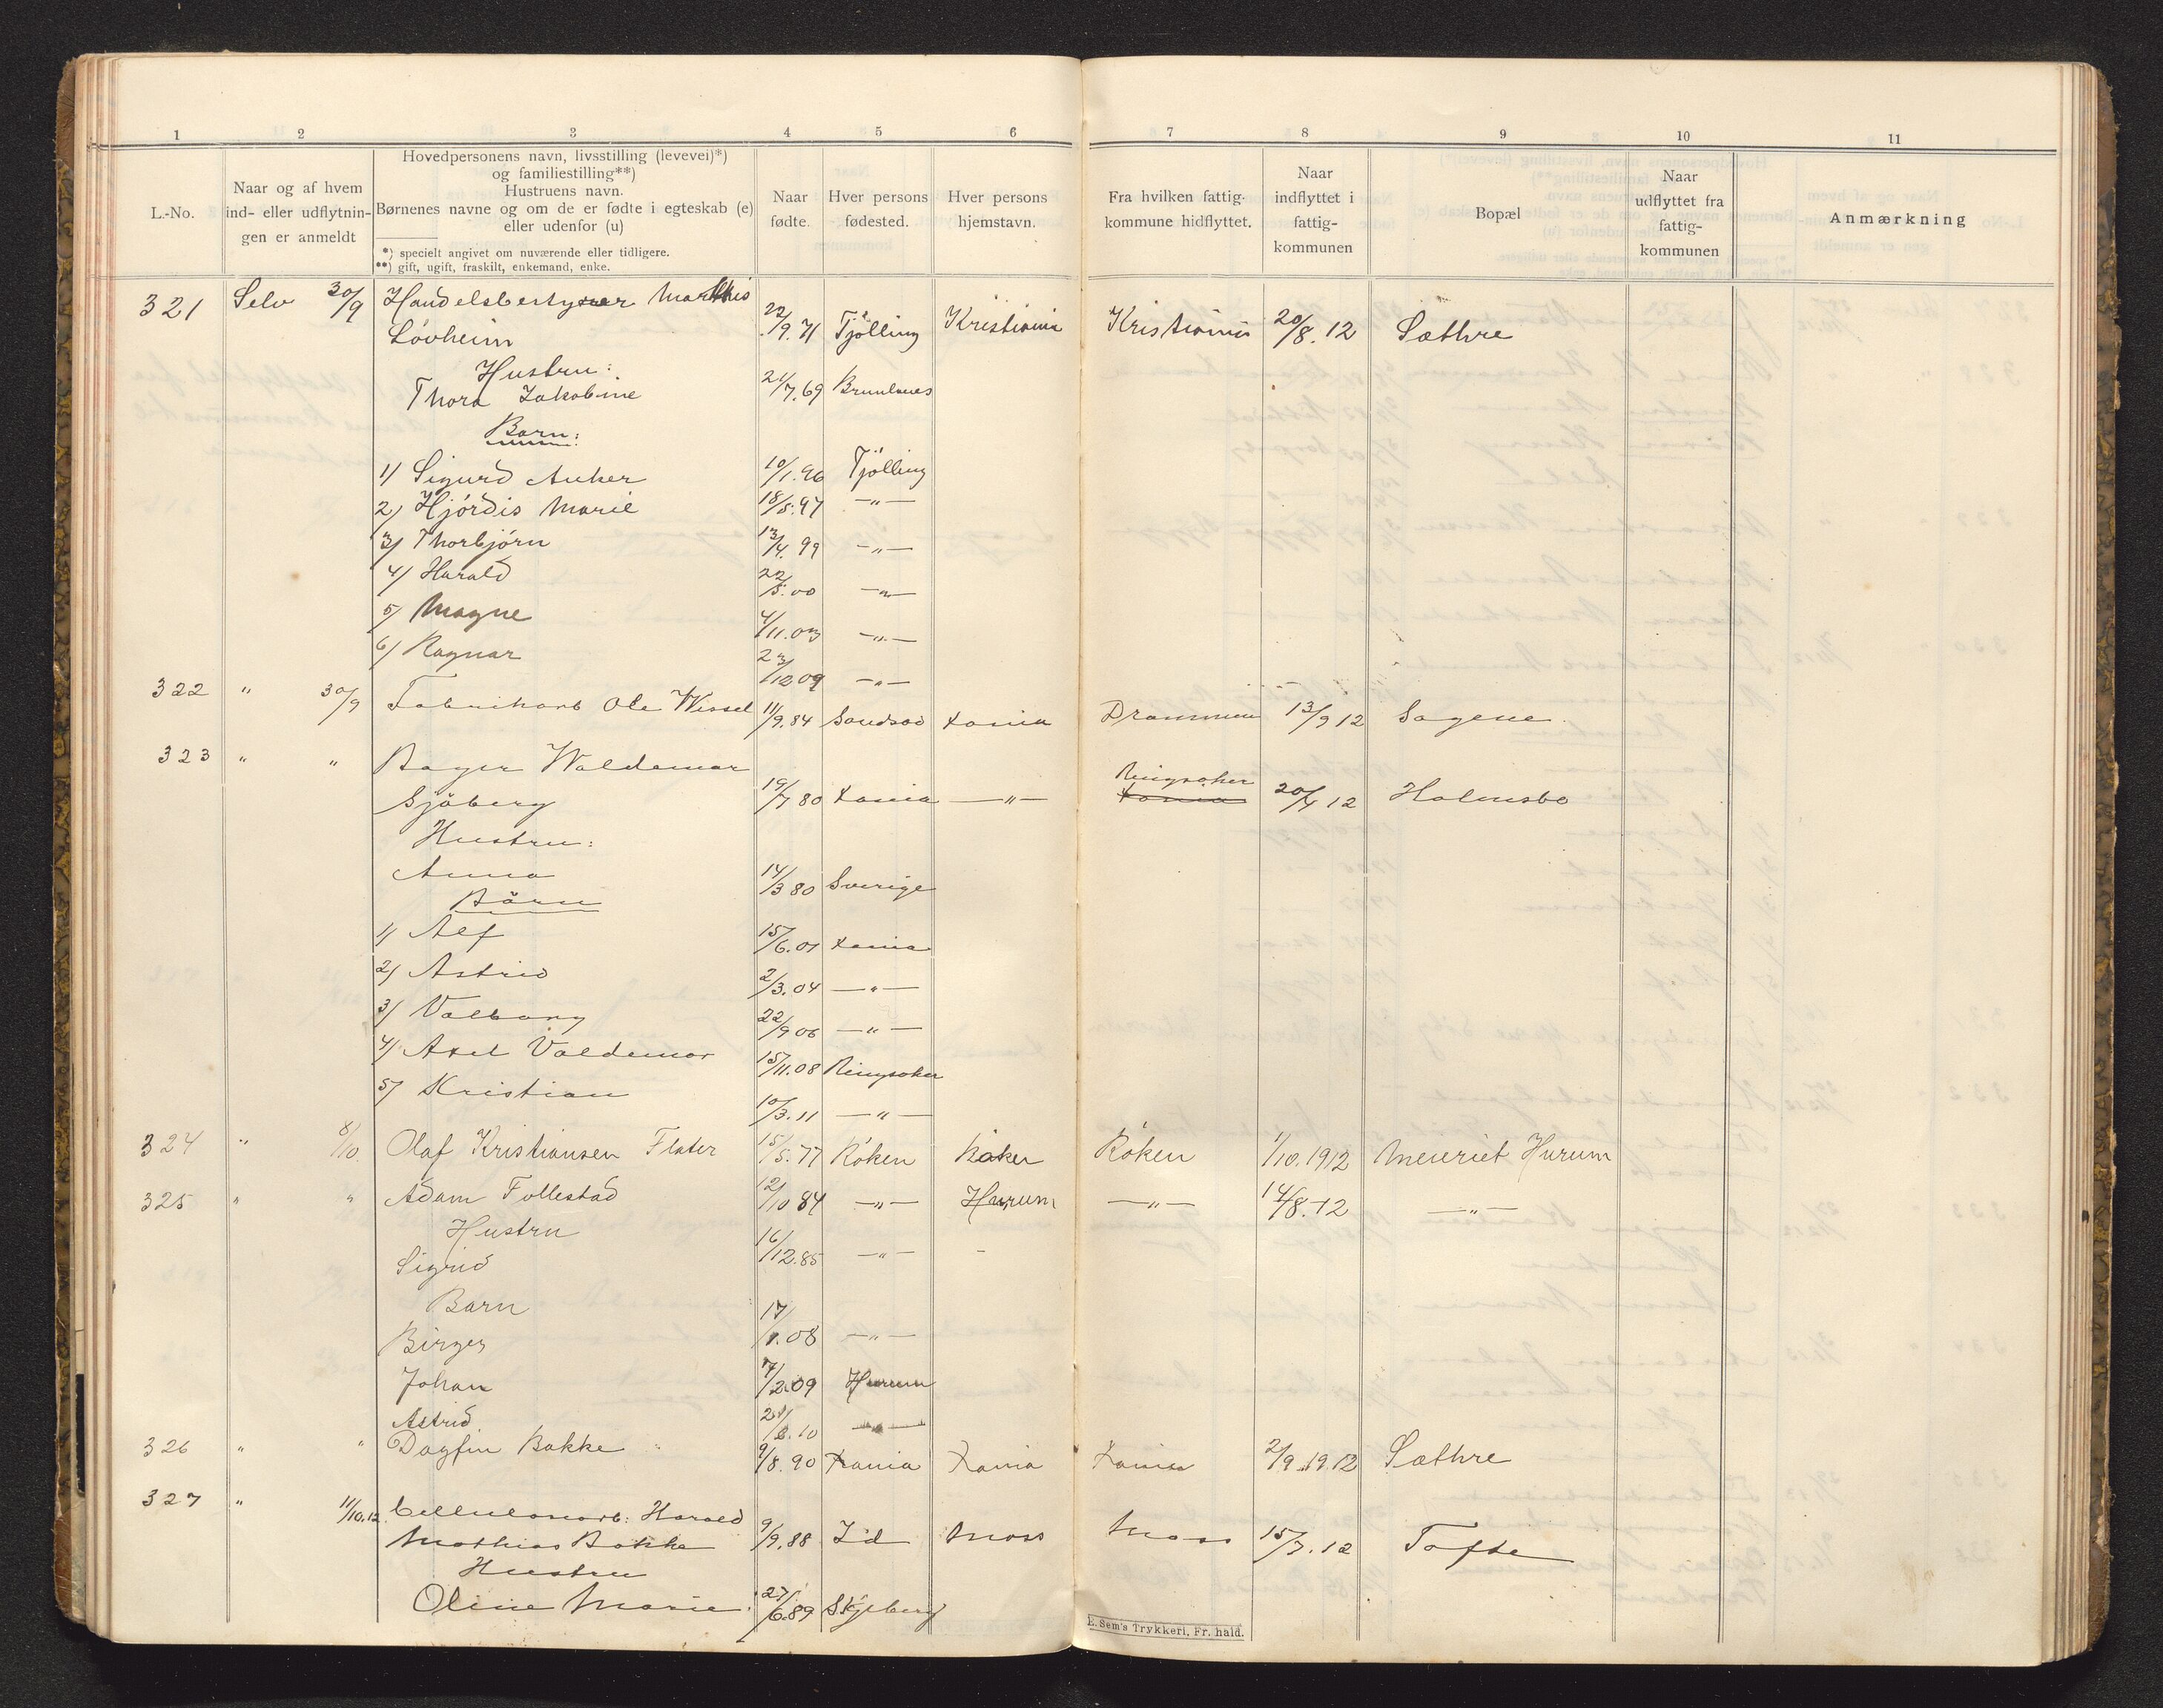 1 2 3 4 5 6 7 8 9 10 11
L.-No.
Naar og af hvem
ind- eller udflytnin-
gen er anmeldt
Hovedpersonens navn, livsstilling (levevei)*)
og familiestilling**)
Hustruens navn.
Børnenes navne og om de er fødte i egteskab (e)
eller udenfor (u)
*) specielt angivet om nuværende eller tidligere.
**) gift, ugift, fraskilt, enkemand, enke.
Naar
fødte.
Hver persons
fødested.
Hver persons
hjemstavn.
Fra hvilken fattig-
kommune hidflyttet.
Naar
indflyttet i
fattig-
kommunen
Bopæl
Naar
udflyttet fra
fattig-
kommunen
Anmærkning
321 Selv 30/9 Handelsbestyrer Marthis
Lövheim 22/9.71 Tjølling Kristiania Kristiania 20/8.12 Sæthre
Hustru:
Thora Jakobine 21/7.69 Brunlanes
Barn:
1) Sigurd Anker 10/1.96 Tjølling
2) Hjórdis Marie 18/5.97 —"—
3) Thorbjórn 13/4.99 —"—
4) Harald 22/5.00 —"—
5) Magne 4/11.03 —"—
6) Ragnar 23/12 09 —"—
322 " 30/9 Fabrikarb Ole Wessel 11/9.84 Sandsvd Xania Drammen 13/9 12 Sagene
323 " " Bager Waldemar
Sjöberg 19/7 80 Xania —"— Ringsaker Xania 20/4 12 Holmsbo
Hustru:
Anna 14/3 80 Sverige
Börn
1) Alf 15/6.01 Xania
2) Astrid 2/3.04 —"—
3) Valborg 22/9 06 —"—
4) Axel Valdemar 15/11.08 Ringsaker
5) Kristian 10/3.11 —"—
324 " 8/10. Olaf Kristiansen Flater 15/5.77 Róken Róken Róken 1/10.1912 Meieriet Hurum
325 " " Adam Follestad 12/10 84 —"— Hurum —"— 14/8.12 —"—
Hustru
Sigrid 16/12.85 —"— -
Barn
Birger 17/1.08 —"—
Johan 7/2.09 Hurum
Astrid 21/8.10 —"—
326 " " Dagfin Bakke " 9/8.90 Xania Xania Xania 2/9.1912 Sæthre
327 " 11/10.12 Cellulosearb: Harald
Mathias Bakke 9/9.88 Id Moss Moss 15/7.12 Tofte
Hustru
Oline Marie 27/6.89 Skjeberg
E. Sem's Trykkeri, Fr.hald.